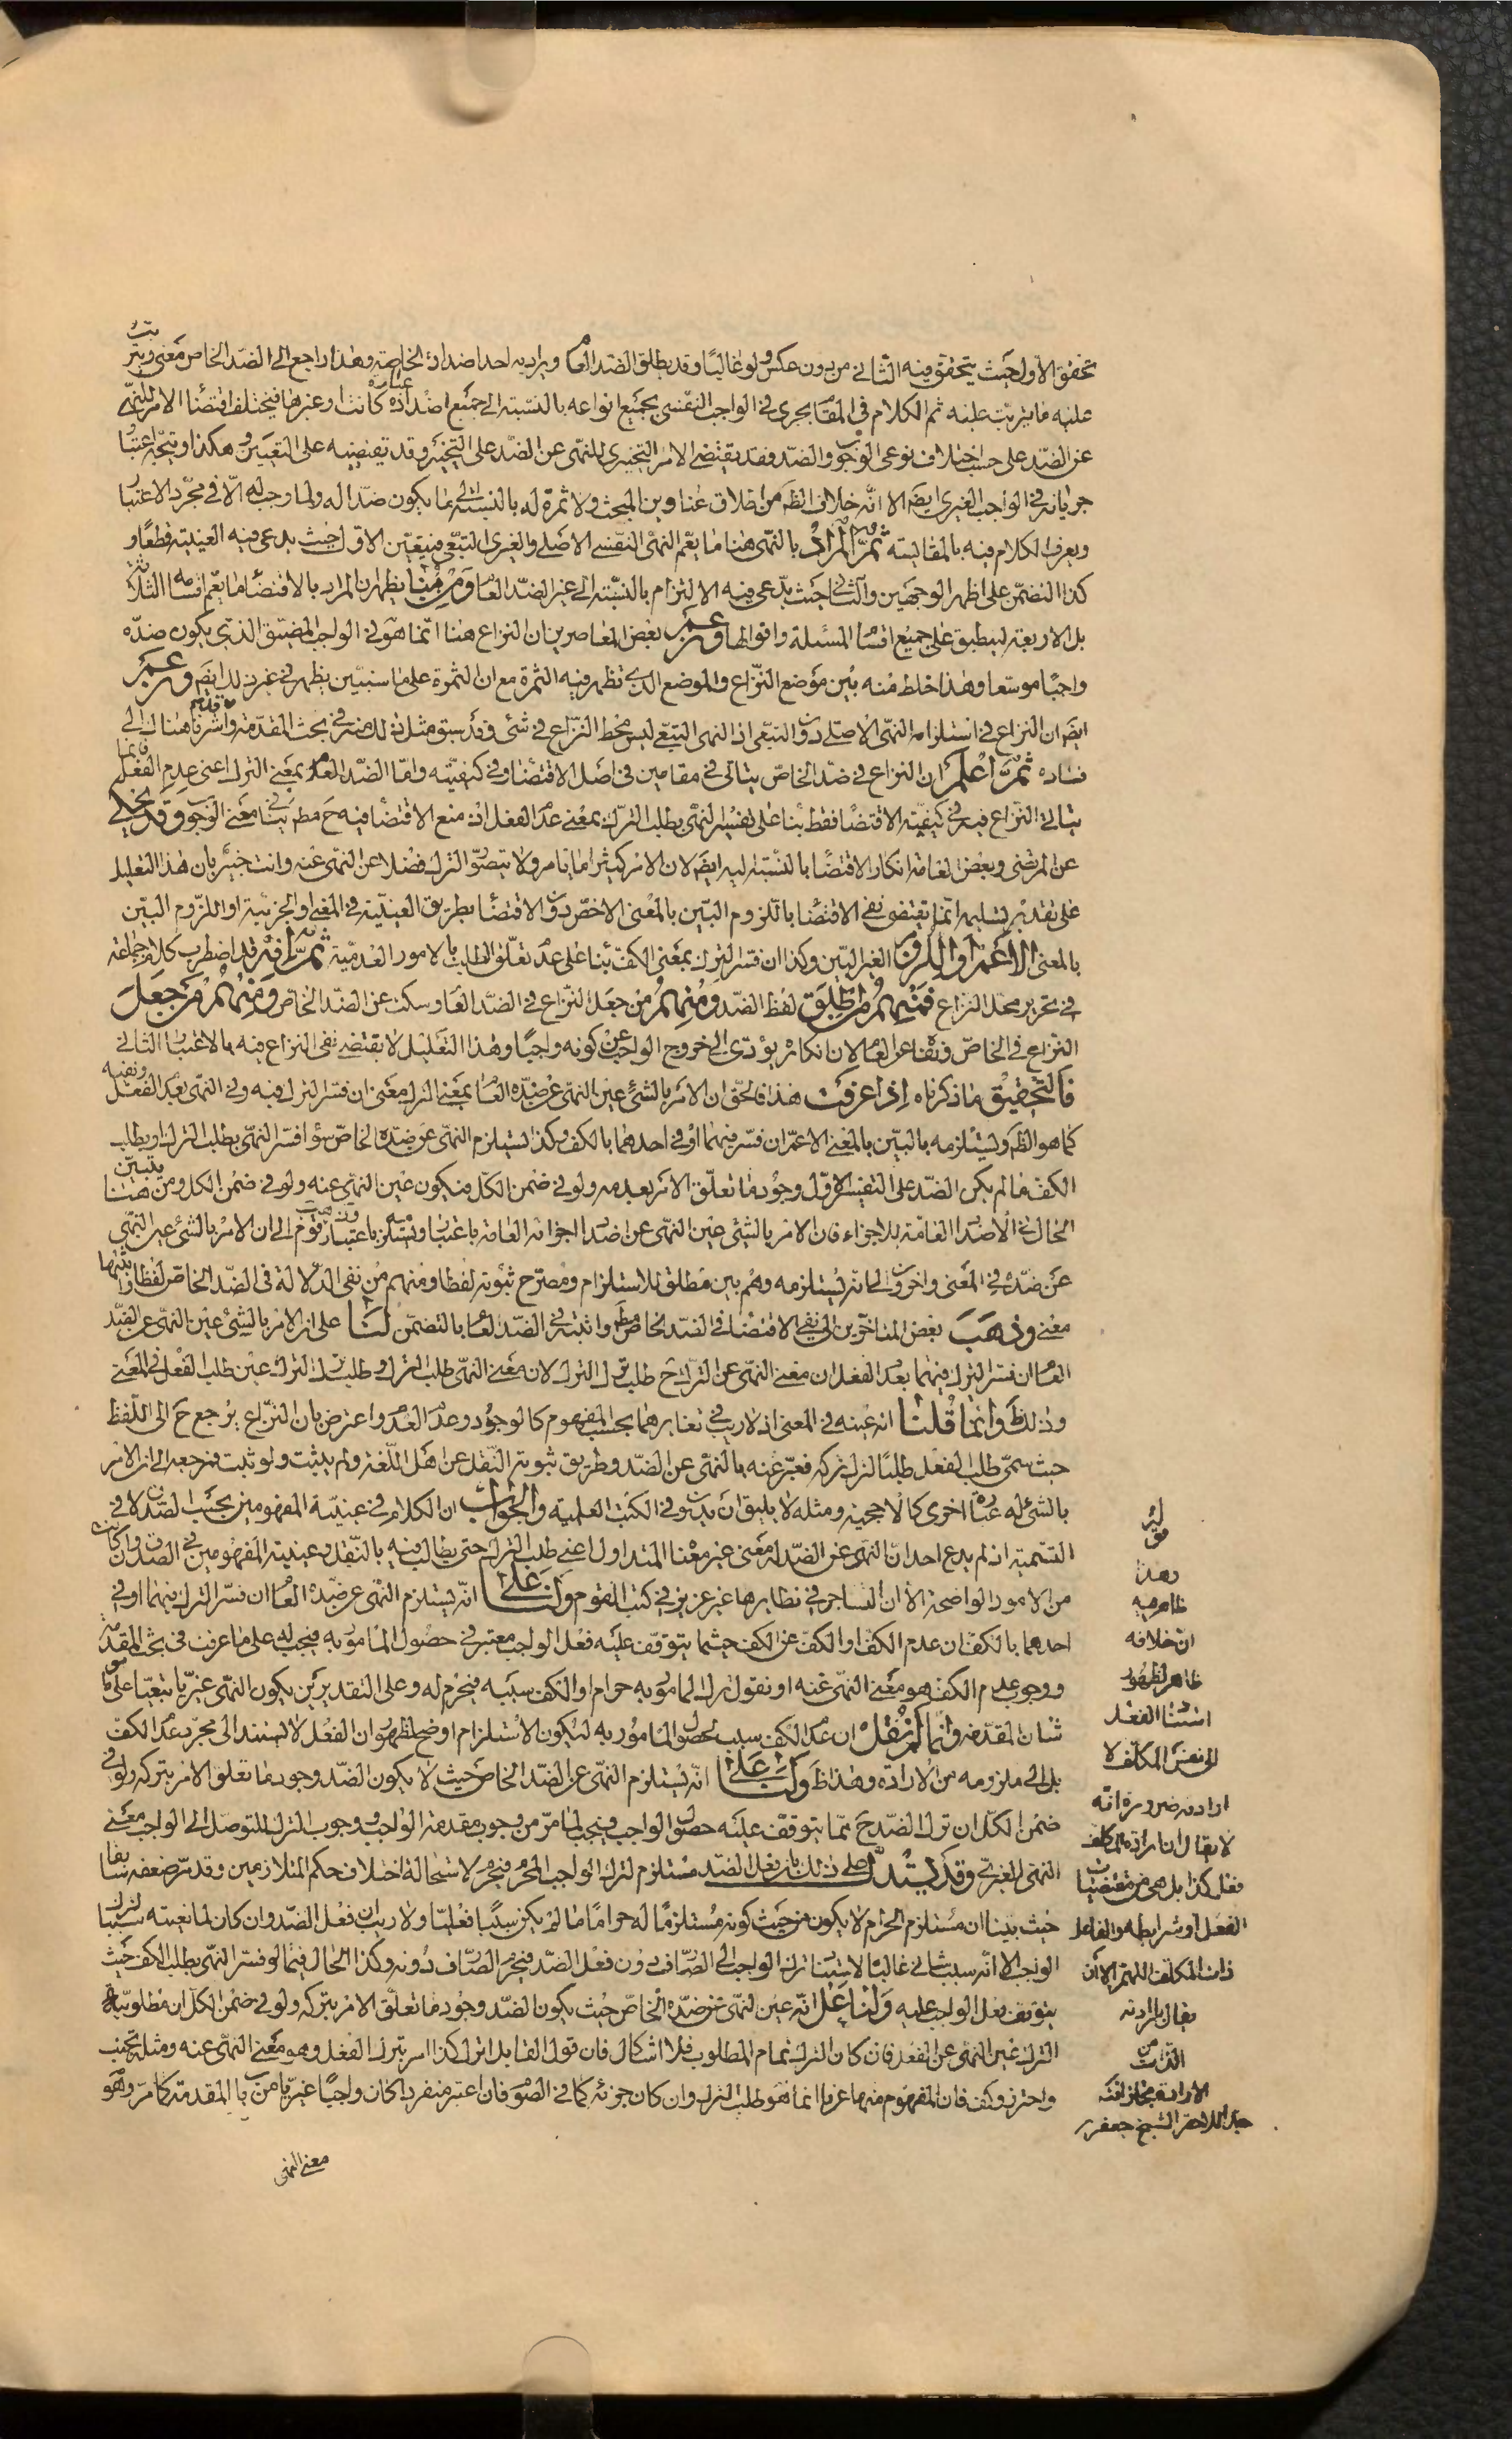 تحقق الاول حيث يتحقق فيه الثاني من دون عكس ولو غالبًا وقد يطلق الضد العام ويراد به احد اضداده الخاصة وهذا راجع الى الضد الخاص معنى ويترتب
عليه ما يترتب عليه ثم الكلام في المقام يجرى في الواجب النفسي بجميع انواعه بالنسبة الى جميع اضداده عبادة كانت او غيرها فيختلف اقتضاء الامر للنهى
عن الضد على حسب اختلاف نوعى الوجوب والضد فقد يقتضى الامر التخييرى للنهى عن الضد على التخيير وقد يقتضيه على التعيين وهكذا ويتجه اعتبار
جريانه في الواجب الغيرى ايضا الا انه خلاف الظ من اطلاق عناوين المبحث ولا ثمرة له بالنسبة الى ما يكون ضدا له ولما وجب له الا في مجرد الاعتبار
ويعرف الكلام فيه بالمقايسة ثم المراد بالنهى هنا ما يعم النهى النفسى الاصلى والغيرى التبعى فيتعين الاول حيث يدعى فيه العينية قطعًا و
كذا التضمن على اظهر الوجهين والثانى حيث يدعى فيه الالتزام بالنسبة الى غير الضد العام ومن هنا يظهر ان المراد بالاقتضاء ما يعم اقسامه الثلاثة
بل الاربعة لينطبق على جميع اقسام المسئلة واقوالها وزعم بعض المعاصرين ان النزاع هنا انما هو في الواجب المضيق الذى يكون ضده
واجبًا موسعا وهذا خلط منه بين موضع النزاع والموضع الذى تظهر فيه الثمرة مع ان الثمرة على ما سنبين يظهر في غير ذلك ايضا وزعم
ايضا ان النزاع في استلزامه النهى الاصلى دون التبعى اذ النهى التبعى ليس محط النزاع في شئ وقد سبق مثل ذلك منه في بحث المقدمة واشرنا هناك الى
فساده ثم اعلم ان النزاع في ضد الخاص يتاتى في مقامين في اصل الاقتضاء وفي كيفيته واما الضد العام بمعنى الترك اعنى عدم الفعل فانما
يتاتى النزاع فيه في كيفية الاقتضاء فقط بناء على تفسير النهى بطلب الترك بمعنى عدم الفعل اذ منع الاقتضاء فيه ح مط ينافى معنى الوجوب وقد يحكى
عن المرتضى وبعض العامة انكار الاقتضاء بالنسبة اليه ايضا لان الامر كثيرا ما يامر ولا يتصور الترك فضلا عن النهى عنه وانت خبير بان هذا التعليل
على تقدير تسليمه انما يقتضى نفى الاقتضاء باللزوم البين بالمعنى الاخص دون الاقتضاء بطريق العينية في المعنى او الجزئية او اللزوم البين
بالمعنى الاعم او اللزوم الغير البين وكذا ان فسر الترك بمعنى الكف بناء على عدم تعلق الطلب بالامور العدمية ثم انه قد اضطرب كلام جماعة
في تحرير محل النزاع فمنهم من اطلق لفظ الضد ومنهم من جعل النزاع في الضد العام وسكت عن الضد الخاص ومنهم من جعل
النزاع في الخاص ونفاه عن العام لان انكاره يؤدى الى خروج الواجب عن كونه واجبًا وهذا التعليل لا يقتضى نفى النزاع فيه بالاعتبار الثانى
فالتحقيق ما ذكرناه اذا عرفت هذا فالحق ان الامر بالشئ عين النهى عن ضده العام بمعنى الترك معنى ان فسر الترك فيه وفي النهى بعدم الفعل
كما هو الظ ويستلزمه بالبين بالمعنى الاعم ان فسر فيهما او في احدهما بالكف وكذا يستلزم النهى عن ضده الخاص سواء فسر النهى بطلب الترك او بطلب
الكف ما لم يكن الضد على التفسير الاول وجود ما تعلق الامر بعدمه ولو في ضمن الكل فيكون عين النهى عنه ولو في ضمن الكل ومن هنا يتبين
الحال في الاضداد العامة للاجزاء فان الامر بالشئ عين النهى عن اضداد اجزائه العامة باعتبار ويستلزمه باعتبار وذهب قوم الى ان الامر بالشئ عين النهى
عن ضده في المعنى واخرون الى انه يستلزمه وهم بين مطلق للاستلزام ومصرح ثبوته لفظا ومنهم من نفى الدلالة في الضد الخاص لفظا واثبتها
معنى وذهب بعض المتاخرين الى نفى الاقتضاء في الضد الخاص مط واثبته في الضد العام بالتضمن لنا على ان الامر بالشئ عين النهى عن الضد
العام ان فسر الترك فيهما بعدم الفعل ان معنى النهى عن الترك ح طلب ترك الترك لان معنى النهى طلب الترك وطلب ترك الترك عين طلب الفعل في المعنى
وذلك ظ وانما قلنا انه عينه في المعنى اذ لا ريب في تغايرهما بحسب المفهوم كالوجود وعدم العدم واعترض بان النزاع يرجع ح الى اللفظ
حيث سمى طلب الفعل طلبًا لترك تركه فعبر عنه بالنهى عن الضد وطريق ثبوته النقل عن اهل اللغة ولم يثبت ولو ثبت فمرجعه الى ان الامر
بالشئ له عبارة اخرى كالاحجية ومثله لا يليق ان يدون في الكتب العلمية والجواب ان الكلام في عينية المفهومين بحسب الصدق لا في
التسمية اذ لم يدع احد ان النهى عن الضد له معنى غير معناه المتداول اعنى طلب الترك حتى يطالب فيه بالنقل وعينية المفهومين في الصدق وان كان
من الامور الواضحة الا ان التشاجر في نظايرها غير عزيز في كتب القوم ولنا على انه يستلزم النهى عن ضده العام ان فسر الترك فيهما او في
احدهما بالكف ان عدم الكف او الكف عن الكف حيثما يتوقف عليه فعل الواجب معتبر في حصول المامور به فيجب له على ما عرفت في بحث المقدمة
ووجوب عدم الكف هو معنى النهى عنه او نقول ترك المامور به حرام او الكف سببه فيحرم له وعلى التقديرين يكون النهى غيريا تبعيا على ما هو
شان المقدمة وانما لم نقل ان عدم الكف سبب لحصول المامور به ليكون الاستلزام اوضح لظهور ان الفعل لا يستند الى مجرد عدم الكف
بل الى ملزومه من الارادة وهذا ظ ولنا على انه يستلزم النهى عن الضد الخاص حيث لا يكون الضد وجود ما تعلق الامر بتركه ولو في
ضمن الكل ان ترك الضد ح مما يتوقف عليه حصول الواجب فيجب لما مر من وجوب مقدمة الواجب ووجوب الترك للتوصل الى الواجب معنى
النهى الغيرى وقد يستدل على ذلك بان فعل الضد مستلزم لترك الواجب المحرم فيحرم لاستحالة اختلاف حكم المتلازمين وقد مر ضعفه سابقا
حيث بينا ان مستلزم الحرام لا يكون من حيث كونه مستلزمًا له حرامًا ما لم يكن سببًا فعليا ولا ريب ان فعل الضد وان كان لمانعيته سببا لترك
الواجب الا انه سبب شانى غالبًا لاستناد ترك الواجب الى الصارف دون فعل الضد فيحرم الصارف دونه وكذا الحال فيما لو فسر النهى بطلب الكف حيث
يتوقف فعل الواجب عليه ولنا على انه عين النهى عن ضده الخاص حيث يكون الضد وجود ما تعلق الامر بتركه ولو في ضمن الكل ان مطلوبية
الترك عين النهى عن الفعل فان كان الترك تمام المطلوب فلا اشكال فان قول القايل اترك كذا امر بترك الفعل وهو معنى النهى عنه ومثله تجنب
واحترز وكف فان المفهوم منها عرفا انما هو طلب الترك وان كان جزئه كما في الصوم فان اعتبر منفردا كان واجبًا غيريا من باب المقدمة كما مر وهو
معنى النهى
قوله
وهذا
ظاهر فيه
ان خلافه
ظاهر لظهور
استناد الفعل
الى نفس المكلف لا
ارادته ضرورة انه
لا يقال ان ارادة المكلف
فعل كذا بل هى من مقتضيات
الفعل او شرايطه والفاعل
ذات المكلف اللهم الا ان
يقال بارادته
الذات من
الارادة مجازا فتد
الشيخ جعفر